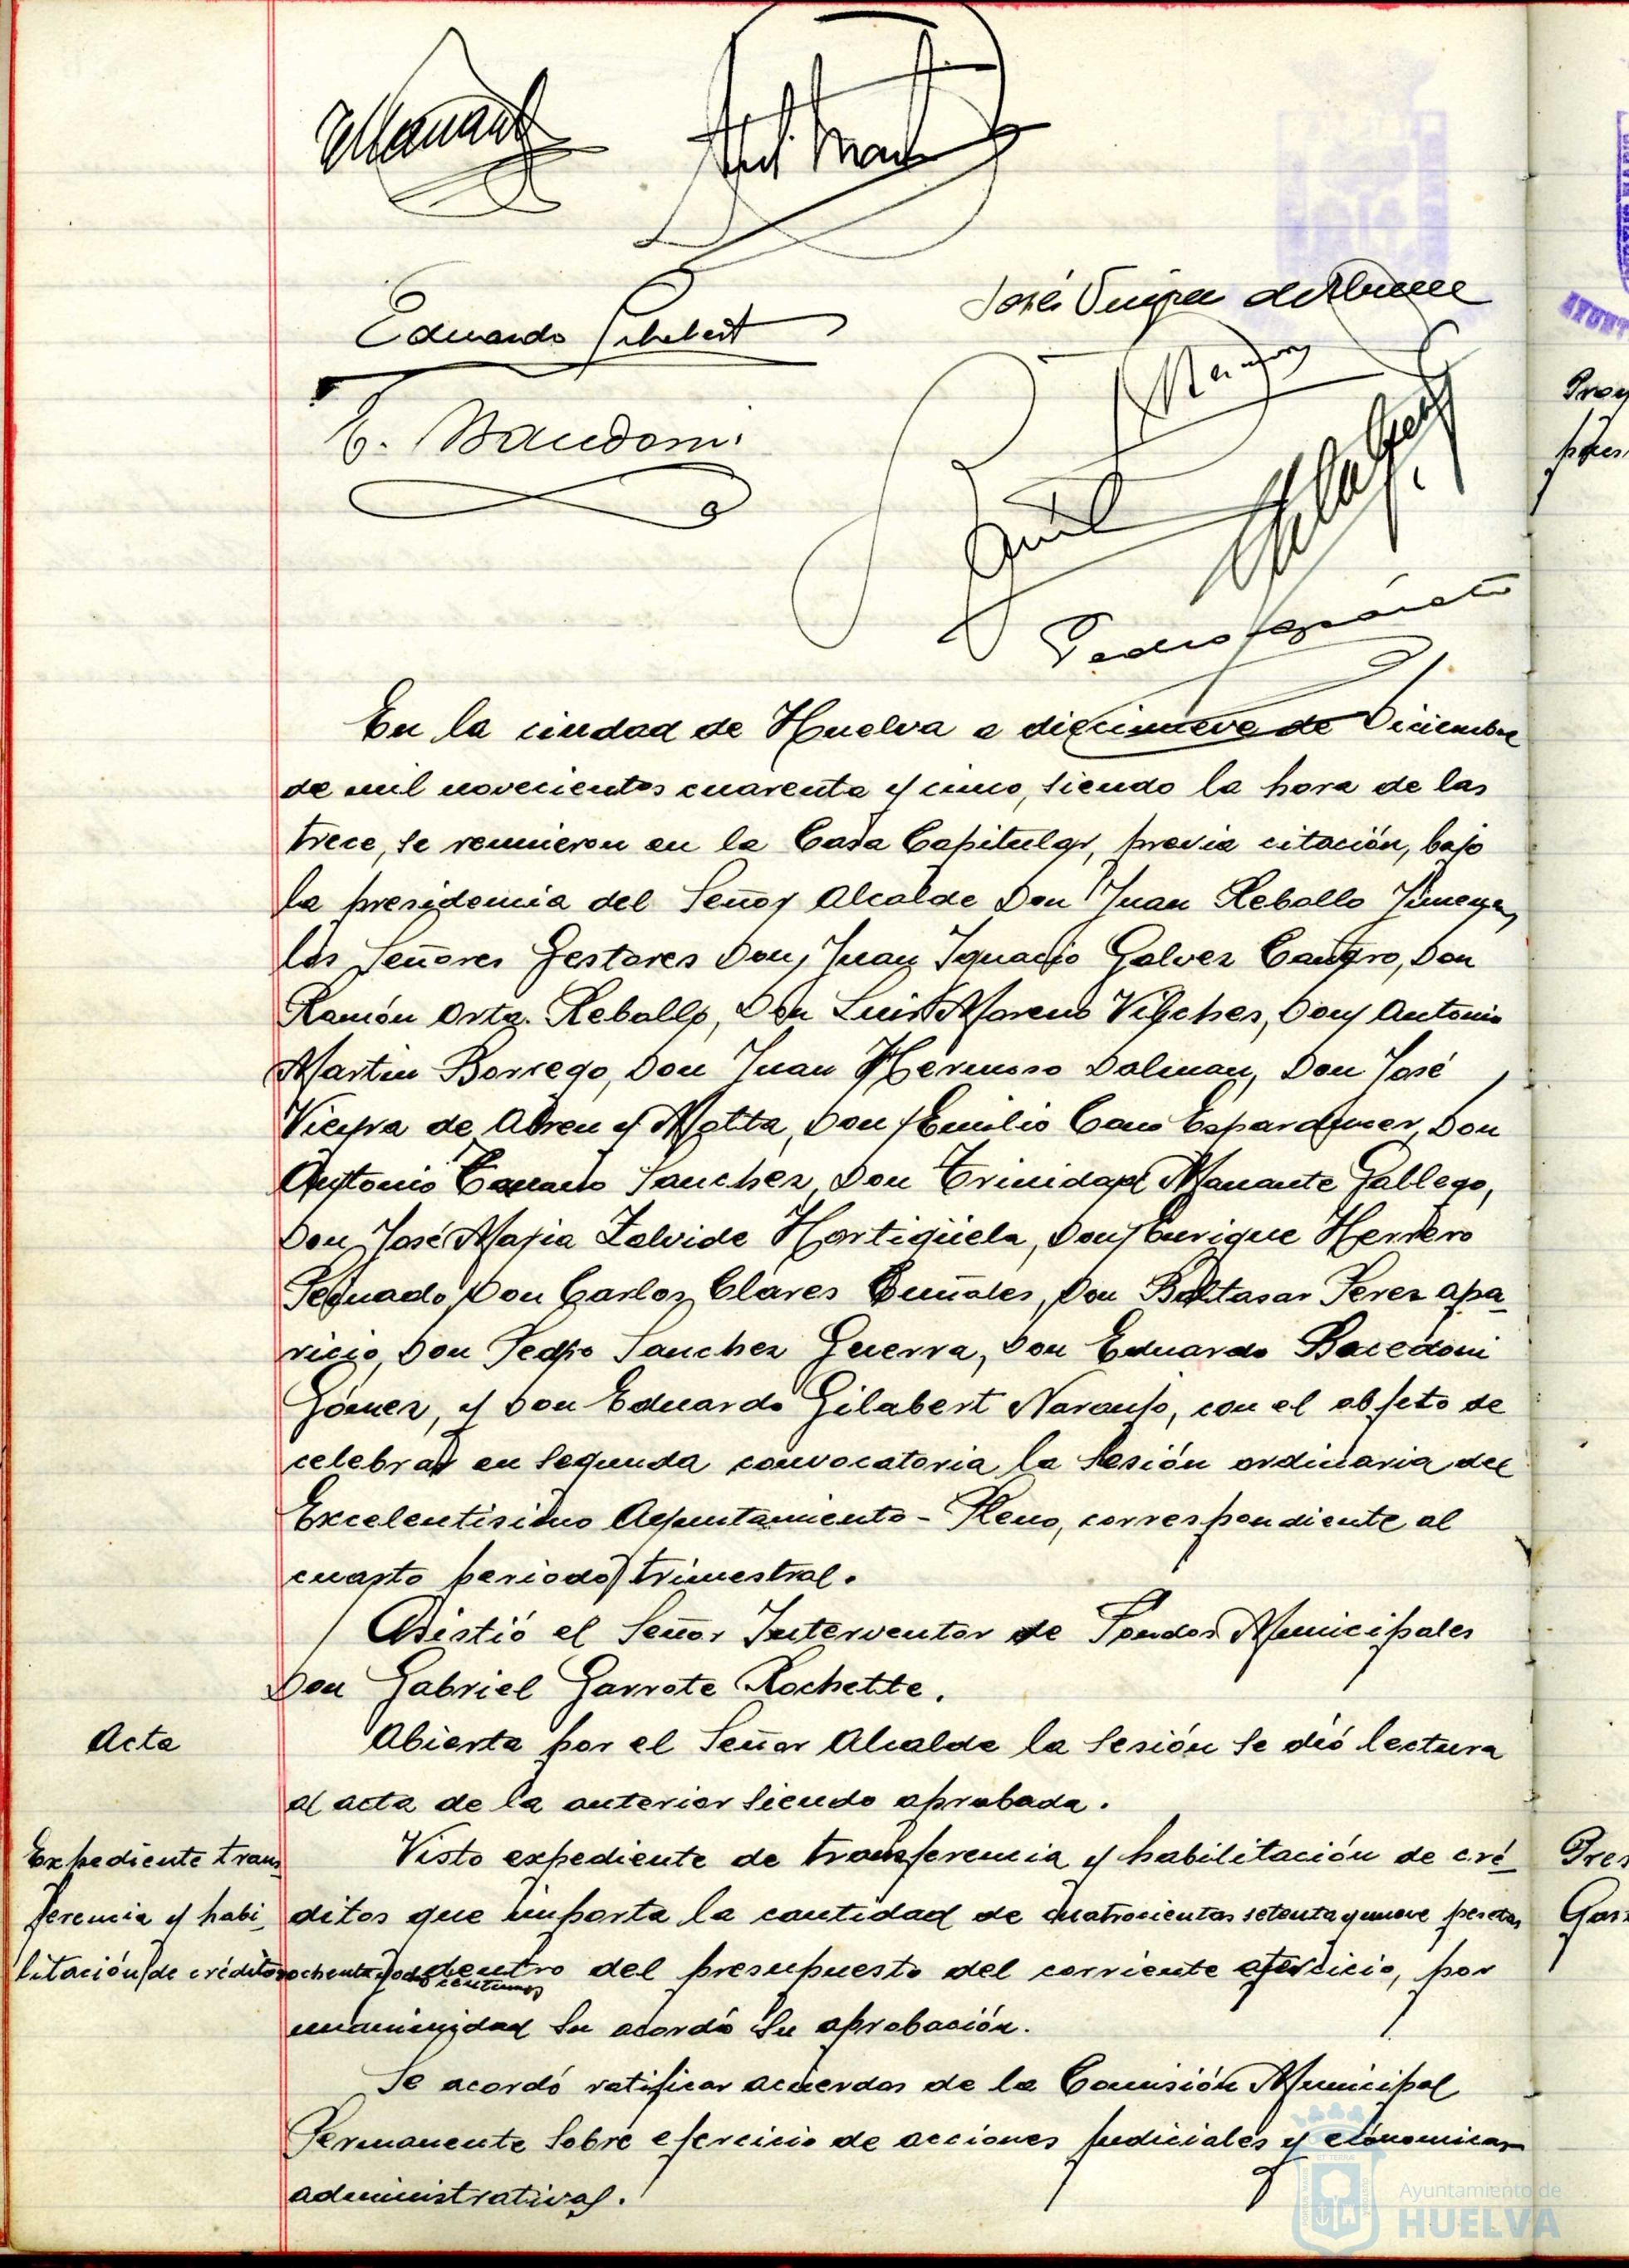 Eduardo Gilabert
José Vieyra de Abreu
E. Bacedoni
Pedro
En la ciudad de Huelva a diecinueve de Diciembre
de mil novecientos cuarenta y cinco, siendo la hora de las
trece, se reunieron en la Casa Capitular, previa citación, bajo
la presidencia del Señor Alcalde Don Juan Rebollo Jimenez,
los Señores Gestores Don Juan Ignacio Galvez Cantero, Don
Ramón Orta Rebollo, Don Luis Moreno Vilches, Don Antonio
Martin Borrego, Don Juan Hermoso Dalman, Don José
Vieyra de Abreu y Motta, Don Emilio Cano Esparducer, Don
Antonio Sanchez, Don Trinidad Manante Gallego,
Don José Maria Zalvide Hortigüela, Don Enrique Herrero
Don Carlos Clares Don Baltasar Perez Apa-
ricio, Don Pedro Sanchez Guerra, Don Eduardo Bacedoni
Gómez, y Don Eduardo Gilabert Naranjo, con el objeto de
celebrar en segunda convocatoria la sesión ordinaria del
Excelentisimo Ayuntamiento - Pleno, correspondiente al
cuarto periodo trimestral.
Asistió el Señor Interventor de Fondos Municipales
Don Gabriel Garrote Rochette.
Acta
Abierta por el Señor Alcalde la sesión se dió lectura
al acta de la anterior siendo aprobada.
Expediente trans
ferencia y habi
litación de créditos
Visto expediente de transferencia y habilitación de cré-
ditos que importa la cantidad de cuatrocientas setenta y nueve pesetas
ochenta y dos centimos dentro del presupuesto del corriente ejercicio, por
unanimidad su acordó su aprobación.
Se acordó ratificar acuerdos de la Comisión Municipal
Permanente sobre ejercicio de acciones judiciales y económicas
administrativas.
Ayuntamiento de
HUELVA